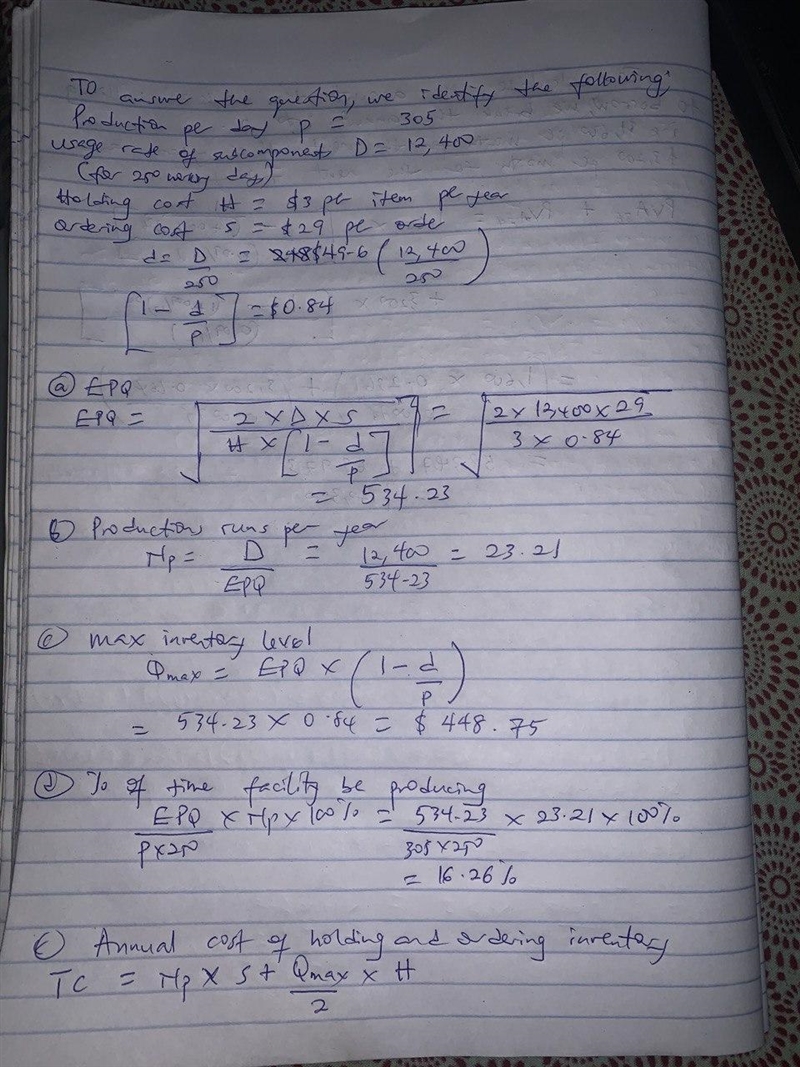 To answe the question, we identify the following;
Production per day P = 305
Usage rate of subcomponent D = 12,400
(for 250 days)
Holding cost H = $3 per item per year
Ordering cost S = $29 per orde
d = D/250 = $49.6 (12,400/250)
[1 - d/P] = $0.84
(a) EPQ
EPQ = √(2 × D × S / H × [1 - d/P]) = √(2 × 12400 × 29 / 3 × 0.84)
= 534.23
(b) Production runs per year
Np = D/EPQ = 12,400/534.23 = 23.21
(c) Max inventory level
Qmax = EPQ × (1 - d/P)
= 534.23 × 0.84 = $448.75
(d) % of time facility be producing
EPQ/P×250 × Np × 100% = 534.23/305×250 × 23.21 × 100%
= 16.26%
(e) Annual cost of holding and ordering inventory
TC = Np × S + Qmax/2 × H